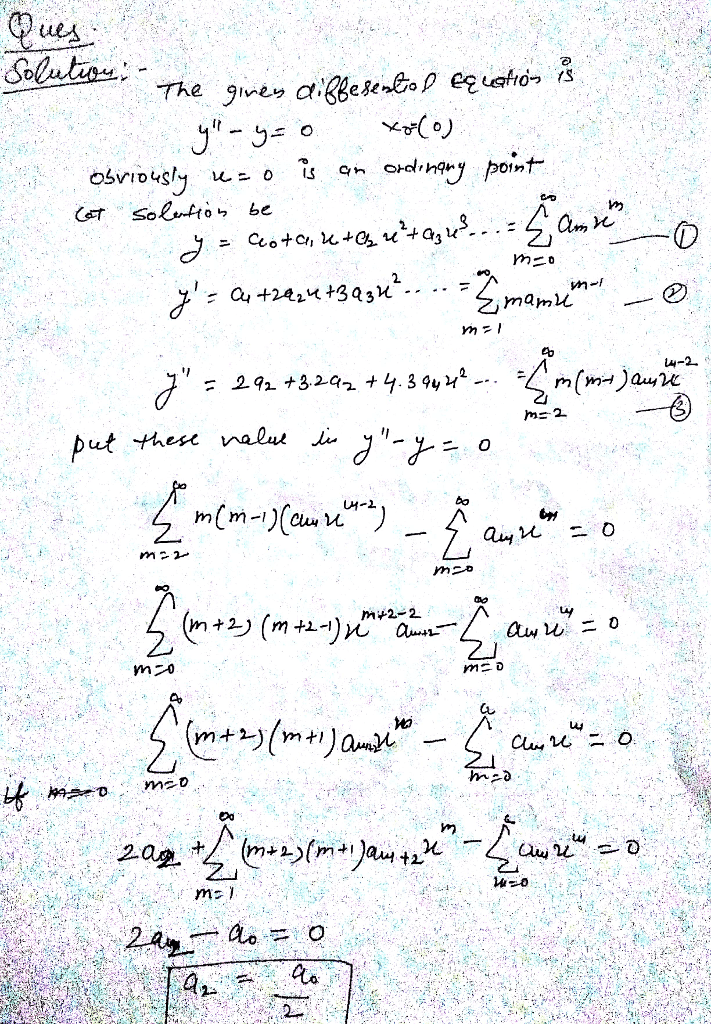 Ques.
Solution:-
The given differential equation is
y'' - y = 0 x₀=(0)
obviously x = 0 is an ordinary point
Let solution be
y = a₀ + a₁x + a₂x² + a₃x³ ... = ∑_{m=0}^{∞} aₘxᵐ — ①
y' = a₁ + 2a₂x + 3a₃x² .... = ∑_{m=1}^{∞} maₘx^{m-1} — ②
y'' = 2a₂ + 3.2a₂ + 4.3a₄x² ... = ∑_{m=2}^{∞} m(m-1)aₘx^{m-2} — ③
put these value in y'' - y = 0
∑_{m=2}^{∞} m(m-1)(aₘx^{m-2}) - ∑_{m=0}^{∞} aₘxᵐ = 0
∑_{m=0}^{∞} (m+2)(m+2-1)x^{m+2-2} a_{m+2} - ∑_{m=0}^{∞} aₘxᵐ = 0
∑_{m=0}^{∞} (m+2)(m+1)a_{m+2}xᵐ - ∑_{m=0}^{∞} aₘxᵐ = 0
if m=0
2a₂ + ∑_{m=1}^{∞} (m+2)(m+1)a_{m+2}xᵐ - ∑_{m=0}^{∞} aₘxᵐ = 0
2a₂ - a₀ = 0
a₂ = a₀/2